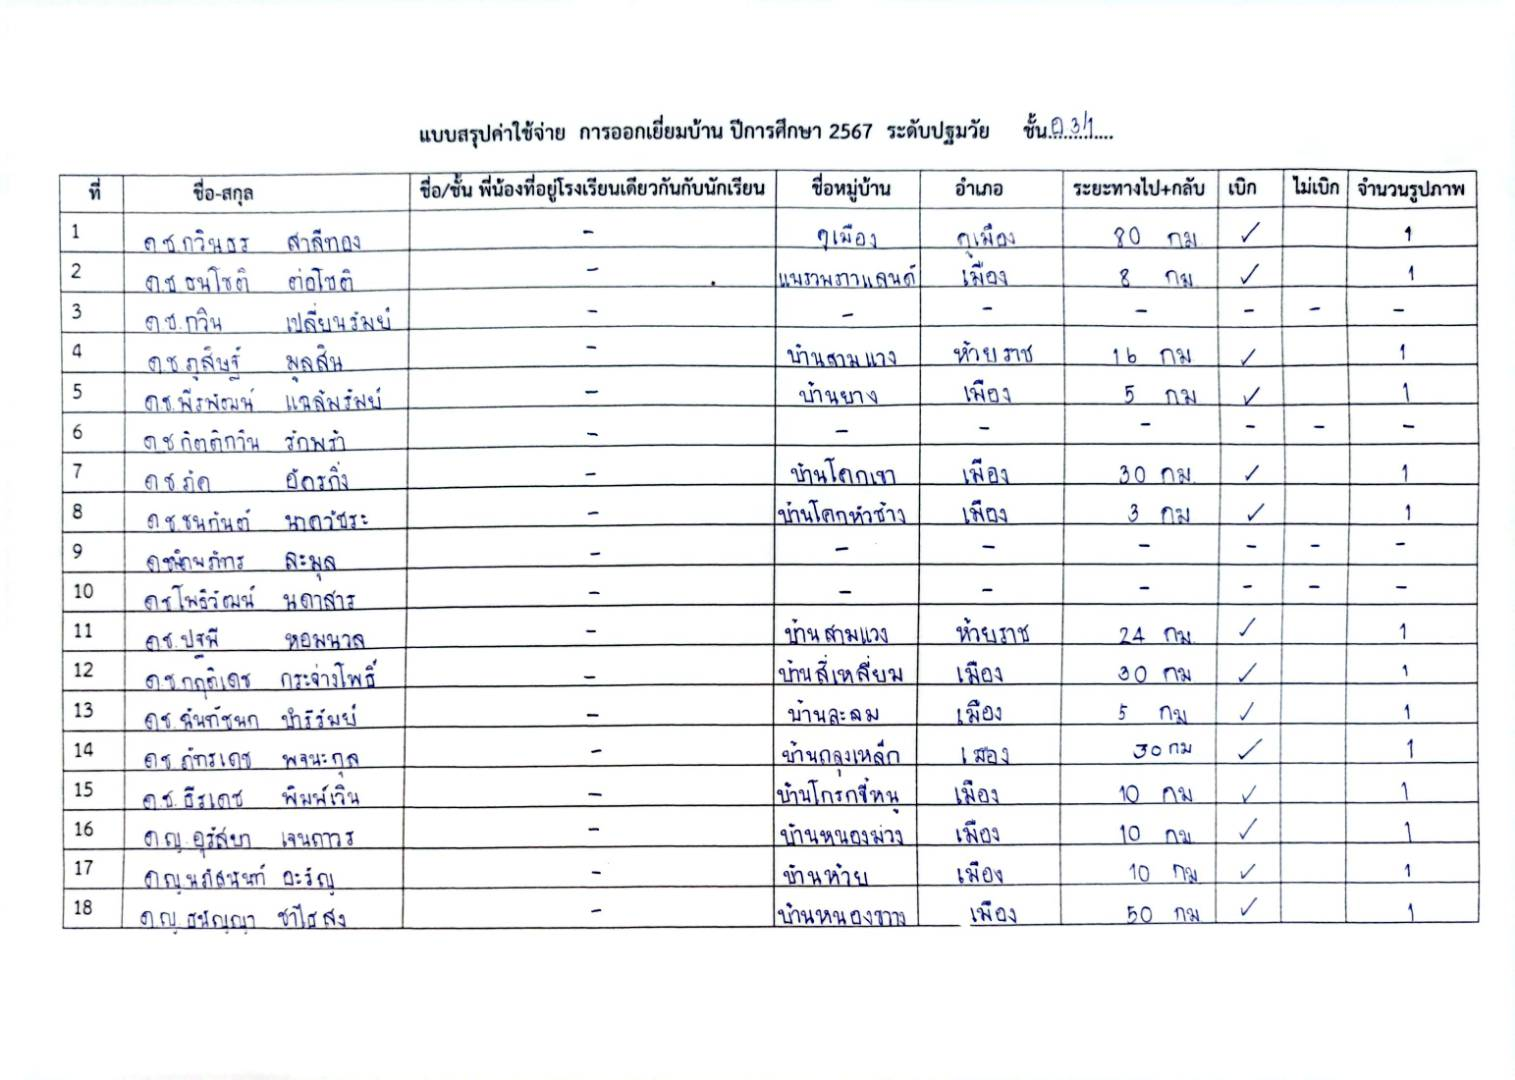 แบบสรุปค่าใช้จ่าย การออกเยี่ยมบ้าน ปีการศึกษา 2567 ระดับปฐมวัย ชั้น..อ 3/1....
ที่ ชื่อ-สกุล ชื่อ/ชั้น พี่น้องที่อยู่โรงเรียนเดียวกันกับนักเรียน ชื่อหมู่บ้าน อำเภอ ระยะทางไป+กลับ เบิก ไม่เบิก จำนวนรูปภาพ
1 ด.ช.กวินธร สาลีทอง - คูเมือง คูเมือง 80 กม ✓ 1
2 ด.ช.ธนโชติ ต่อโชติ - แพรวพราวแลนด์ เมือง 8 กม ✓ 1
3 ด.ช.กวิน เปลี่ยนรัมย์ - - - - - - -
4 ด.ช.ภูสิษฐ์ มุลสิน - บ้านสามแวง ห้วยราช 16 กม ✓ 1
5 ด.ช.พีรพัฒน์ แฉล้มรัมย์ - บ้านยาง เมือง 5 กม ✓ 1
6 ด.ช.กิตติกวิน รักพร้า - - - - - - -
7 ด.ช.ภัค อัครกิ่ง - บ้านโคกเขา เมือง 30 กม. ✓ 1
8 ด.ช.ชนกันต์ นาควัชระ - บ้านโคกหัวช้าง เมือง 3 กม ✓ 1
9 ละมุล - - - - - - -
10 ด.ช.โพธิวัฒน์ นดาสาร - - - - - - -
11 ด.ช.ปฐพี หอมนวล - บ้านสามแวง ห้วยราช 24 กม. ✓ 1
12 ด.ช.กฤติเดช กระจ่างโพธิ์ - บ้านสี่เหลี่ยม เมือง 30 กม ✓ 1
13 ด.ช.ฉันท์ชนก ชำรัมย์ - บ้านละลม เมือง 5 กม ✓ 1
14 ด.ช.ภัทรเดช พจนะกุล - บ้านถลุงเหล็ก เมือง 30 กม ✓ 1
15 ด.ช.ธีรเดช พิมพ์เวิน - บ้านโกรกขี้หนู เมือง 10 กม ✓ 1
16 ด.ญ.อุรัสยา เจนถาวร - บ้านหนองม่วง เมือง 10 กม ✓ 1
17 ด.ญ.นภัสนันท์ อะรัญ - บ้านห้วย เมือง 10 กม ✓ 1
18 ด.ญ.ธนัญญา ชาไธสง - บ้านหนองขวาง เมือง 50 กม ✓ 1